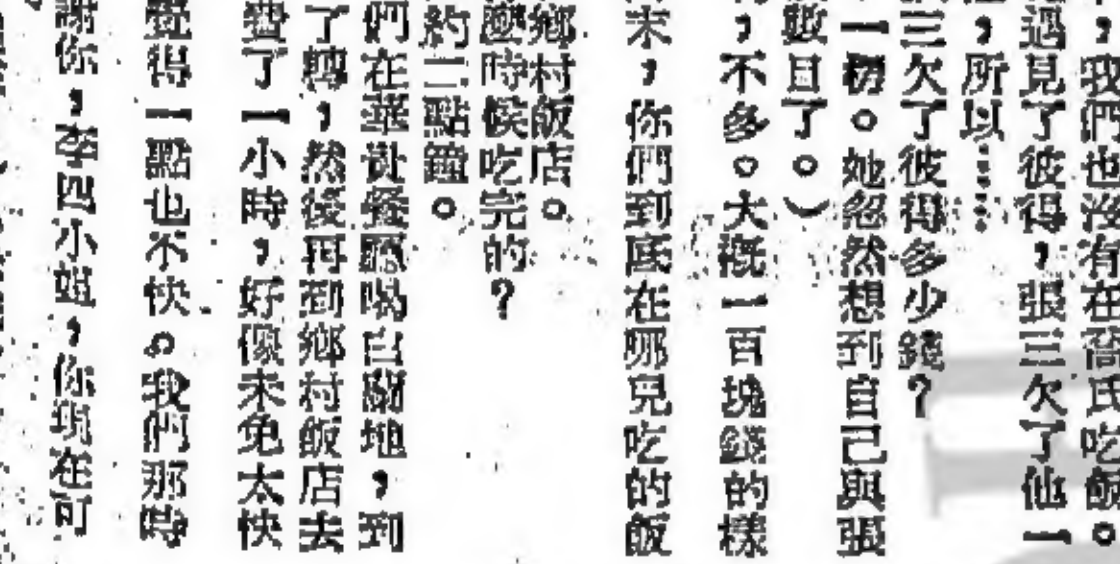 ，我們也沒有在晉民吃飯。
遇見了彼得，張三欠了他一
，所以……
三欠了彼得多少錢？
一楞。她忽然想到自己與張
數目了。）
，不多。大概一百塊錢的樣
末，你們到底在哪兒吃的飯
鄉村飯店。
麼時候吃完的？
約二點鐘。
們在華貴餐廳喝白蘭地，到
了轉，然後再到鄉村飯店去
費了一小時，好像未免太快
覺得一點也不快。我們那時
謝你，李四小姐，你現在可